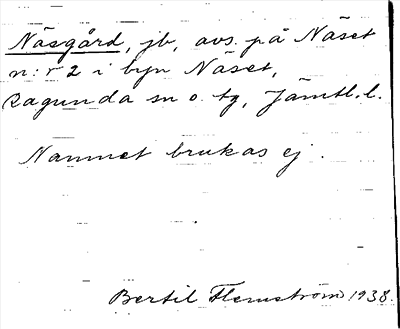 Näsgård, jb, avs. på Näset
n:r 2 i byn Näset,
Ragunda sn o. tg, Jämtl. l.
Namnet brukas ej.
Bertil Flemström 1938.